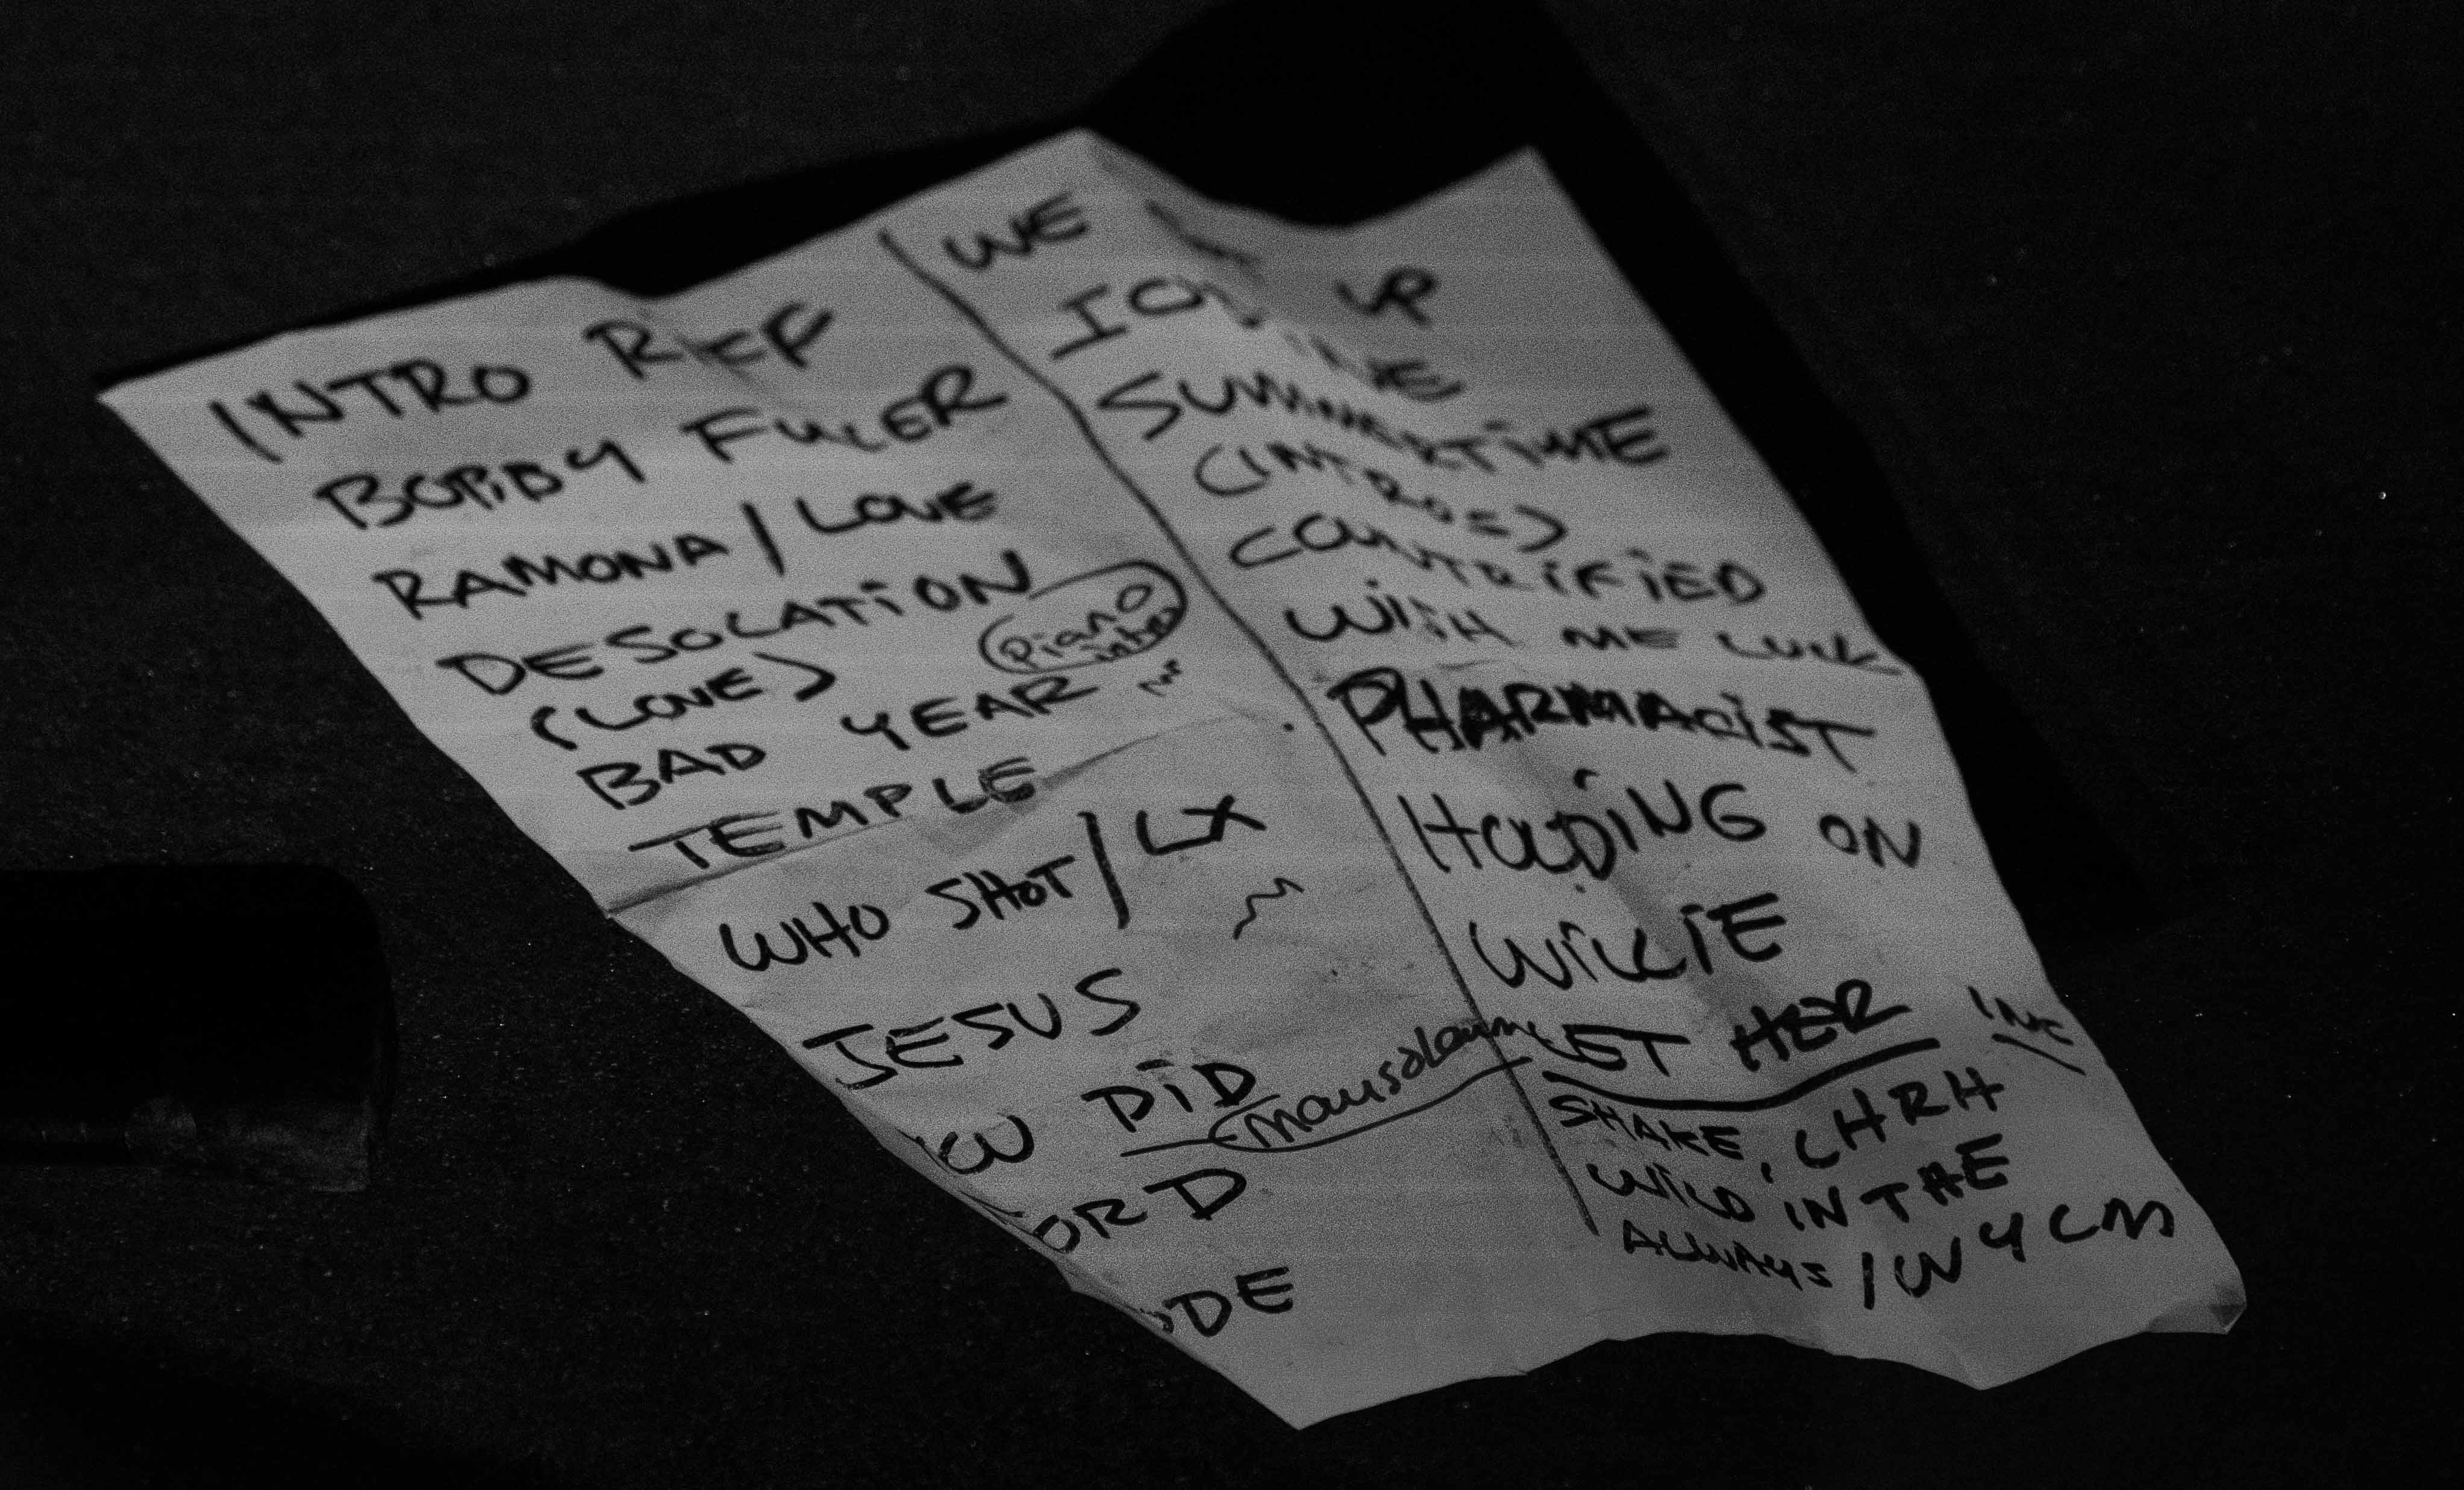 INTRO REF
BOBBY FULLER
RAMONA / LOVE
DESOLATION
(LOVE)
piano
intro
BAD YEAR
TEMPLE
WHO SHOT / LX
JESUS
DID
mausoleum
ORD
DE
WE UP
SUMMERTIME
(INTROS)
COUNTRIFIED
WITH ME LUCK
PHARMACIST
HOLDING ON
WILLIE
LET HER
SHAKE, CHRH
WILD IN THE
ALWAYS / WYCM